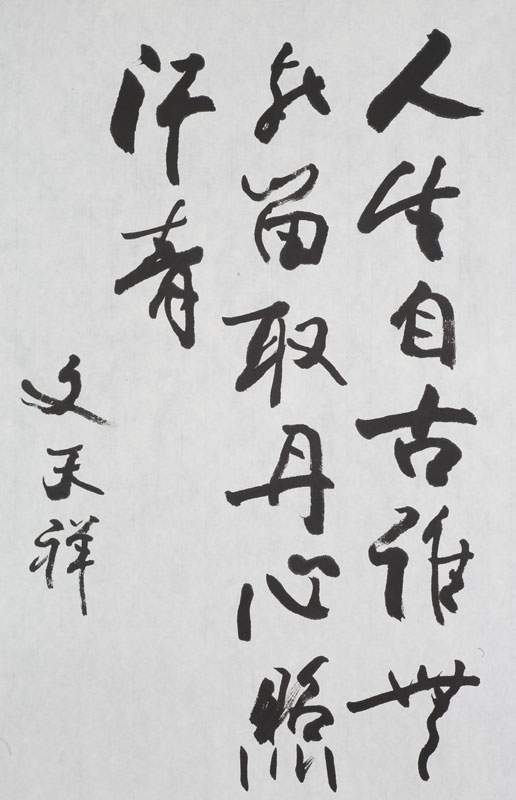 人生自古誰無
死留取丹心照
汗青
文天祥